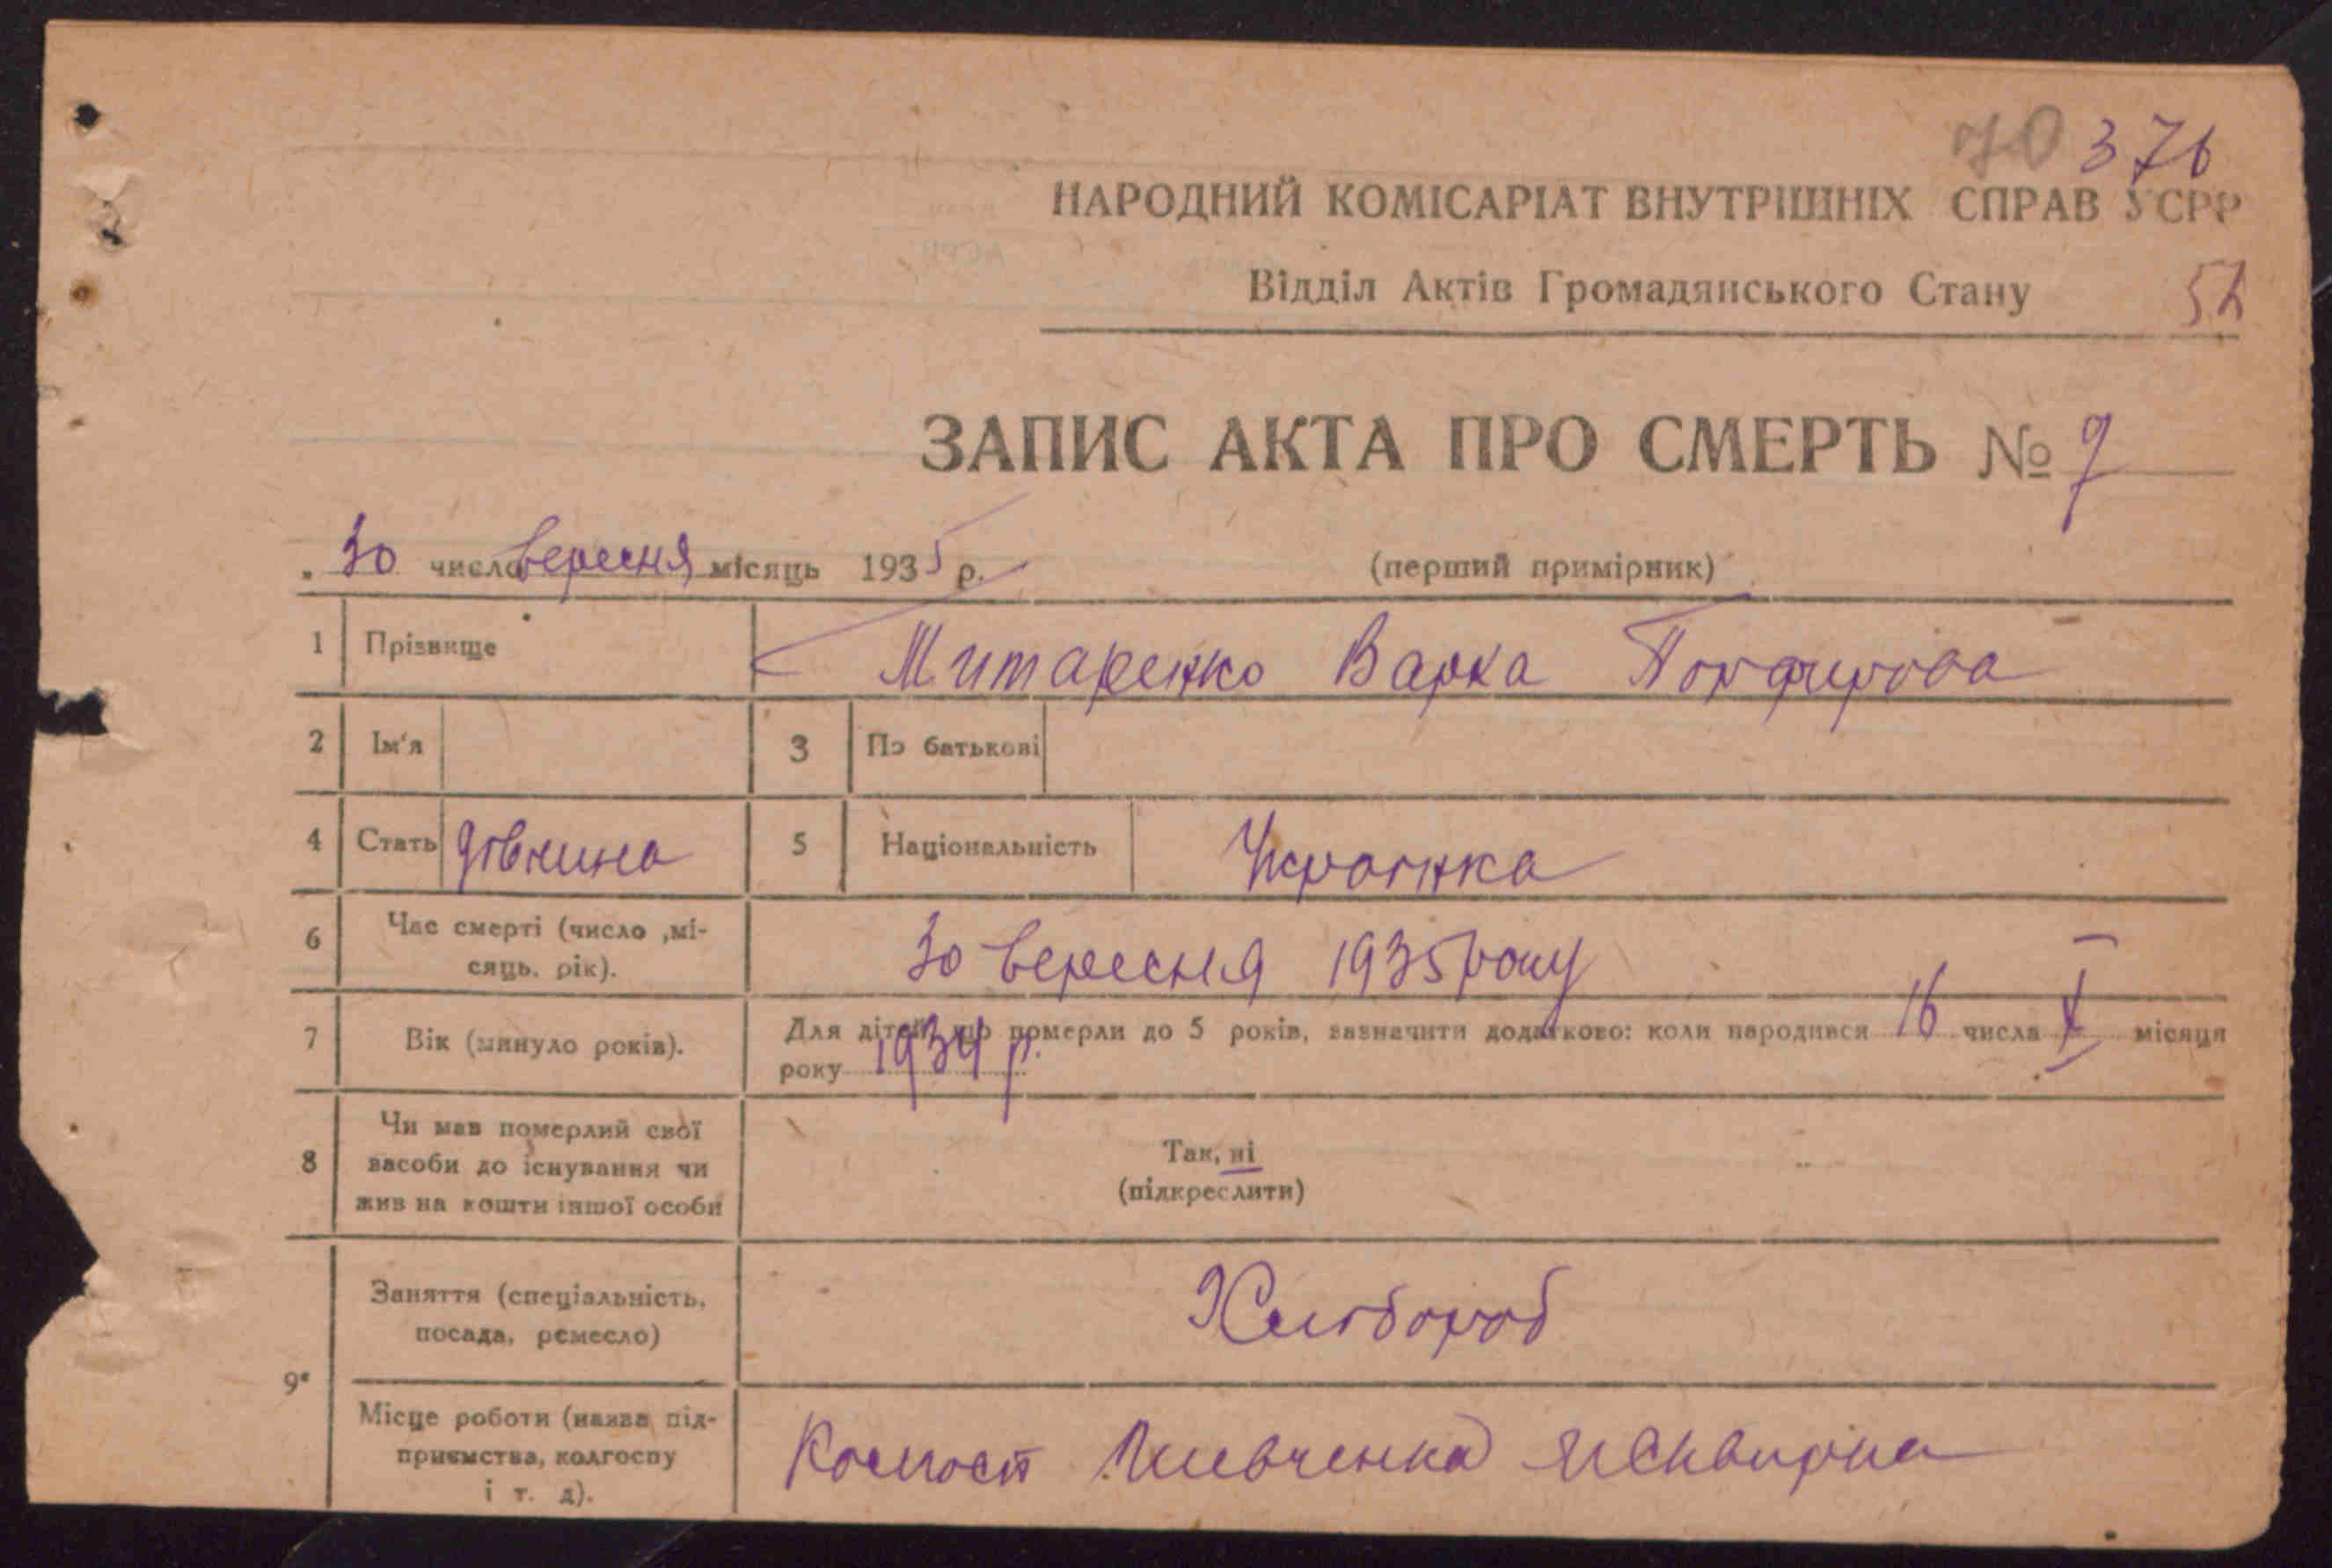 70 376
НАРОДНИЙ КОМІСАРІАТ ВНУТРІШНІХ СПРАВ УСРР
Відділ Актів Громадянського Стану
52
ЗАПИС АКТА ПРО СМЕРТЬ № 7
„ 30 число вересня місяць 1935 р.
(перший примірник)
1 Прізвище Митаренко Варка Порфирова
2 Ім'я 3 По батькові
4 Стать дівчина 5 Національність Українка
6 Час смерті (число ,мі-
сяць, рік). 30 вересня 1935 року
7 Вік (минуло років). Для дітей, що померли до 5 років, зазначити додатково: коли народився 16 числа X місяця
року 1934 р.
8 Чи мав померлий свої
засоби до існування чи
жив на кошти іншої особи
Так, ні
(підкреслити)
9 Заняття (спеціальність,
посада, ремесло) Хлібороб
Місце роботи (назва під-
приємства, колгоспу
і т. д).
Колгосп Шевченка